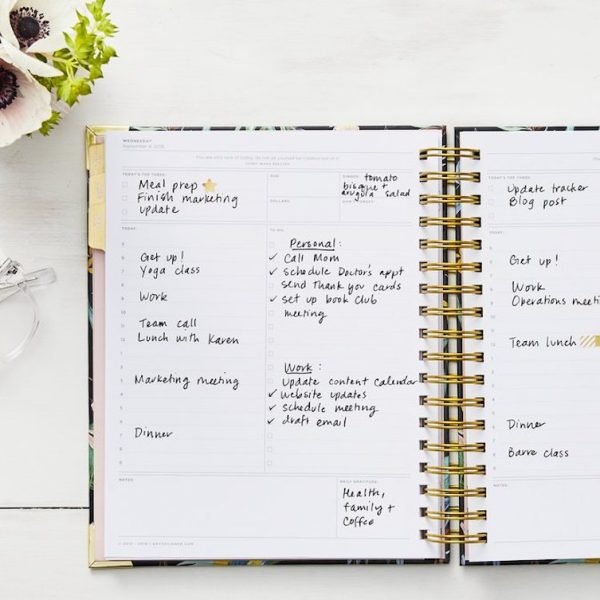 WEDNESDAY
TODAY'S TOP THREE:
Meal prep
Finish marketing
update
DUE:
DOLLARS:
DINNER:
tomato
bisque +
arugula salad
TODAY:
Get up!
Yoga class
Work
Team call
Lunch with Karen
Marketing meeting
Dinner
TO-DO:
Personal:
Call Mom
Schedule Doctor's appt
Send thank you cards
Set up book club
meeting
Work:
Update content calendar
Website updates
Schedule meeting
draft email
NOTES:
DAILY GRATITUDE:
Health,
family +
Coffee
TODAY'S TOP THREE:
Update tracker
Blog post
TODAY:
Get up!
Work
Operations meeti
Team lunch
Dinner
Barre class
NOTES: